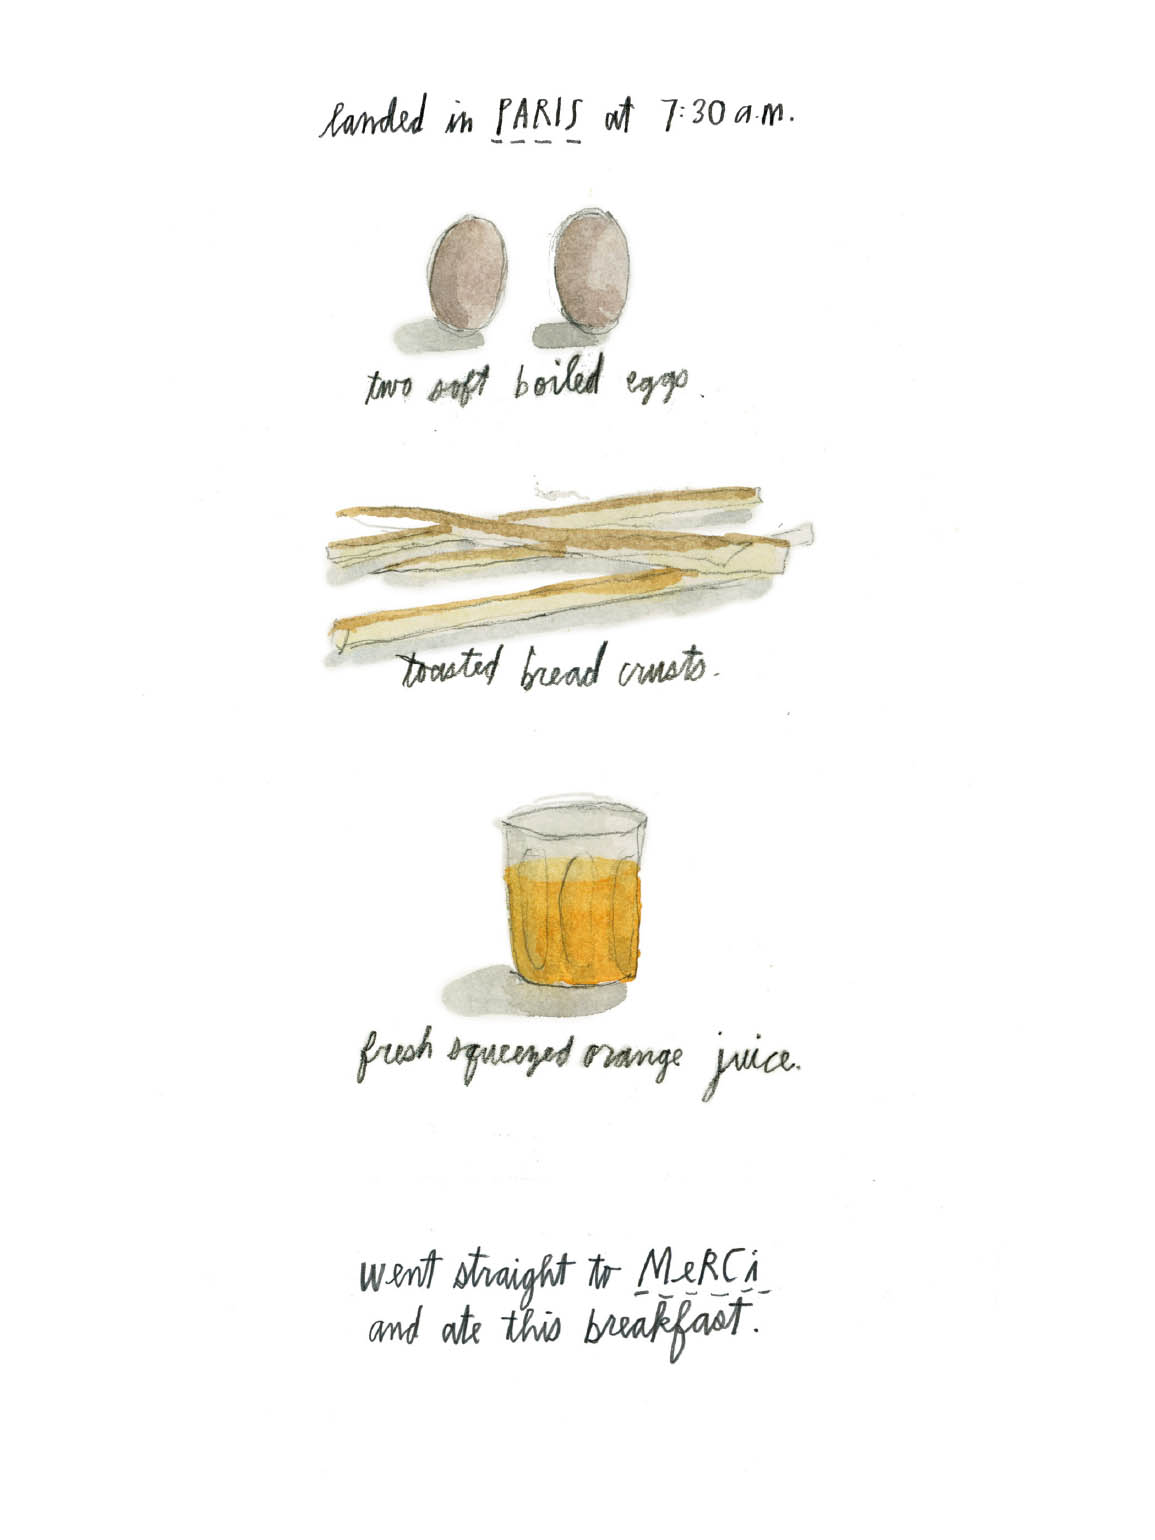 landed in PARIS at 7:30 a.m.
two soft boiled eggs.
toasted bread crusts.
fresh squeezed orange juice.
went straight to MeRCi
and ate this breakfast.